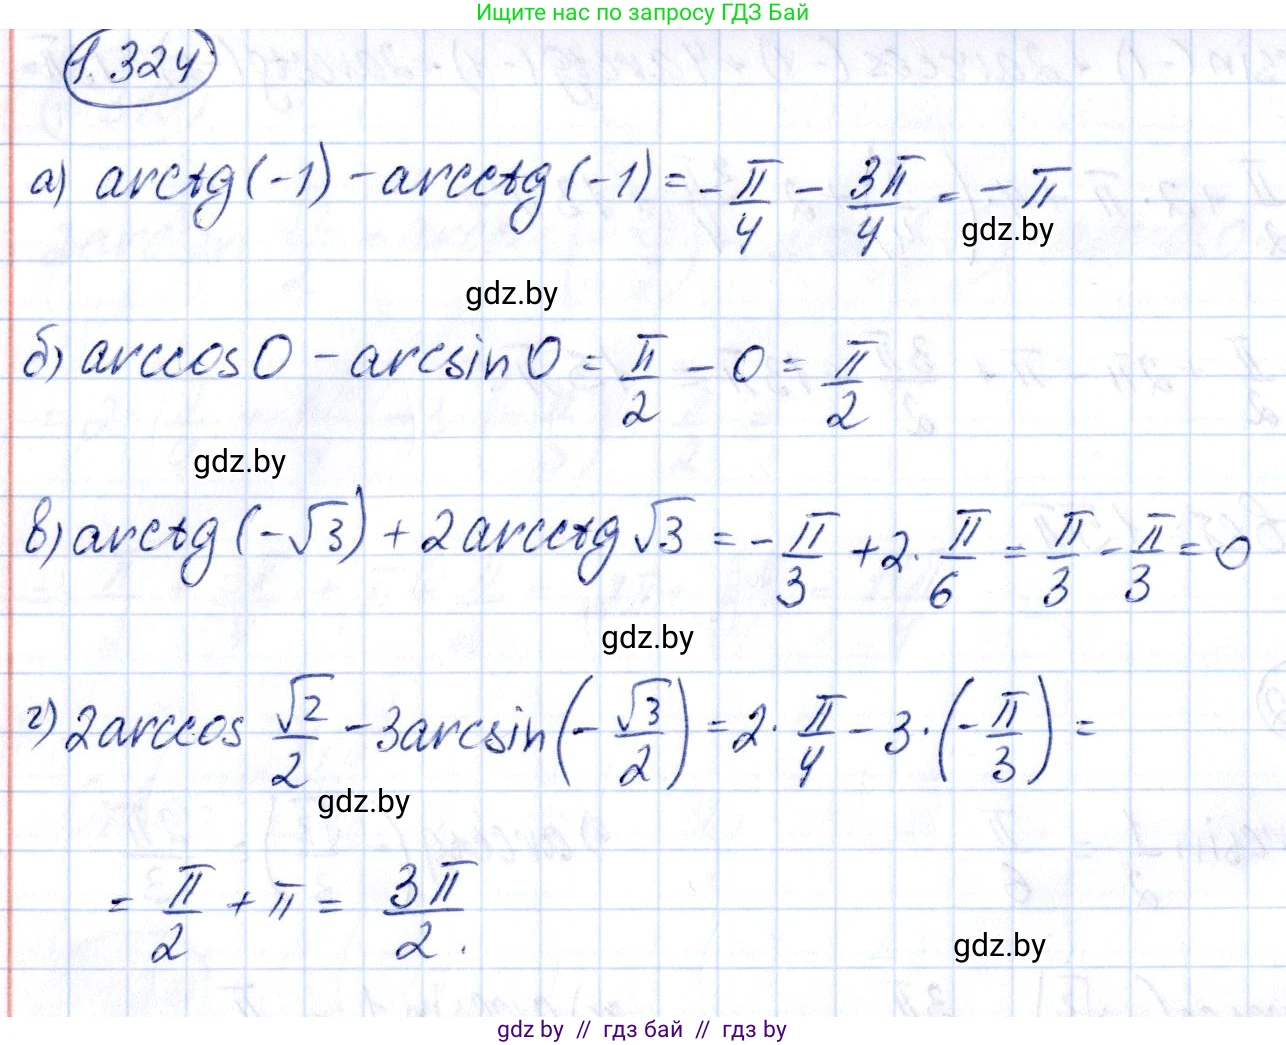 Ищите нас по запросу ГДЗ Бай
1.324
а) arctg(-1) - arcctg(-1) = -π/4 - 3π/4 = -π
gdz.by
gdz.by
б) arccos0 - arcsin0 = π/2 - 0 = π/2
gdz.by
в) arctg(-√3) + 2arcctg√3 = -π/3 + 2·π/6 = π/3 - π/3 = 0
gdz.by
г) 2arccos √2/2 - 3arcsin(-√3/2) = 2·π/4 - 3·(-π/3) =
gdz.by
= π/2 + π = 3π/2.
gdz.by
gdz by // гдз бай // гдз by